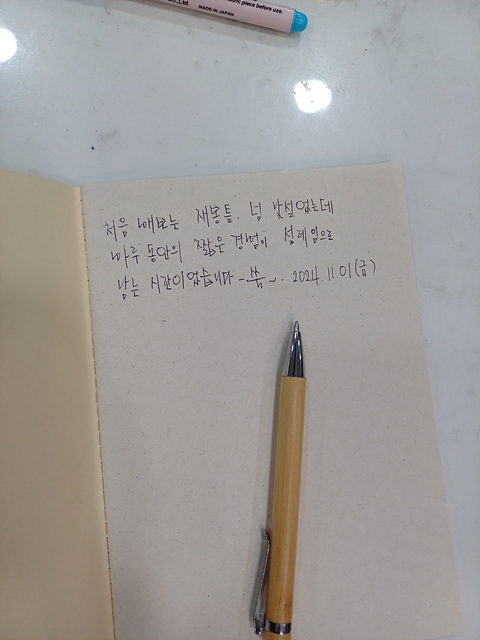 Co.,Ltd
fabric piece before use.
MADE IN JAPAN
처음 해보는 재봉틀. 넘 낯설었는데
하루 동안의 짧은 경험이 설레임으로
남는 시간이었습니다 - 씀 ~. 2024. 11. 01 (금)